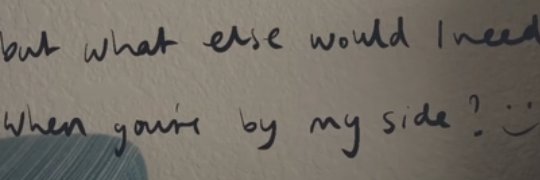 but what else would I need
when you're by my side? :)